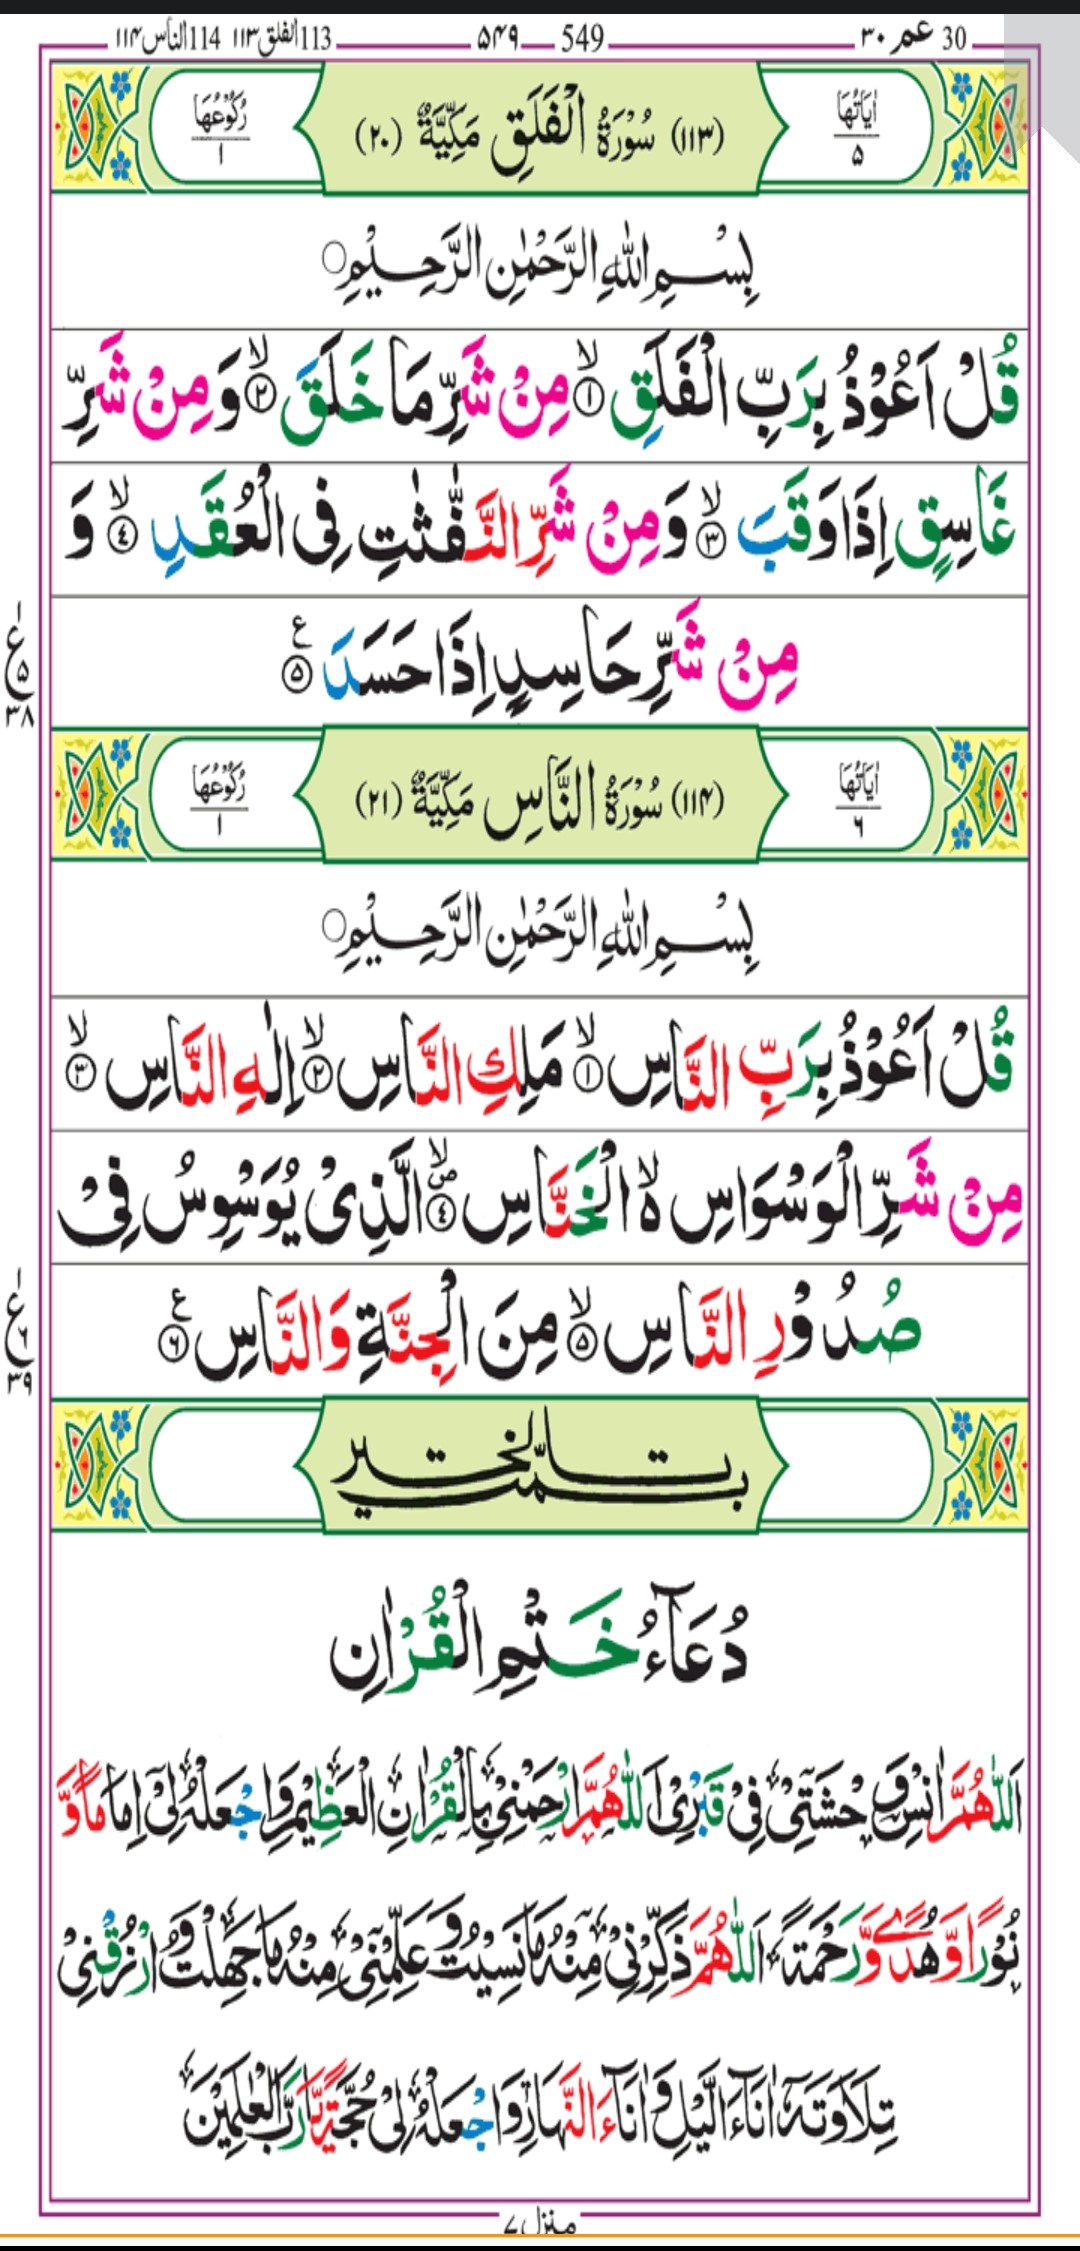 30 عم ۳۰ 549 ۵۴۹ 113 الفلق ۱۱۳ 114 الناس ۱۱۴
اٰيَاتُهَا ۵ (۱۱۳) سُوْرَةُ الْفَلَقِ مَكِّيَّةٌ (۲۰) رُكُوْعُهَا ۱
بِسْمِ اللّٰهِ الرَّحْمٰنِ الرَّحِيْمِ ○
قُلْ اَعُوْذُ بِرَبِّ الْفَلَقِ ۙ ۱ مِنْ شَرِّ مَا خَلَقَ ۙ ۲ وَ مِنْ شَرِّ
غَاسِقٍ اِذَا وَقَبَ ۙ ۳ وَ مِنْ شَرِّ النَّفّٰثٰتِ فِى الْعُقَدِ ۙ ۴ وَ
مِنْ شَرِّ حَاسِدٍ اِذَا حَسَدَ ۵ ع
ع ۵ ۳۸
اٰيَاتُهَا ۶ (۱۱۴) سُوْرَةُ النَّاسِ مَكِّيَّةٌ (۲۱) رُكُوْعُهَا ۱
بِسْمِ اللّٰهِ الرَّحْمٰنِ الرَّحِيْمِ ○
قُلْ اَعُوْذُ بِرَبِّ النَّاسِ ۙ ۱ مَلِكِ النَّاسِ ۙ ۲ اِلٰهِ النَّاسِ ۙ ۳
مِنْ شَرِّ الْوَسْوَاسِ ۙ۬ الْخَنَّاسِ ۪ۙ ۴ الَّذِىْ يُوَسْوِسُ فِىْ
صُدُوْرِ النَّاسِ ۙ ۵ مِنَ الْجِنَّةِ وَالنَّاسِ ۶ ع
ع ۶ ۳۹
تمت بالخير
دُعَآءُ خَتْمِ الْقُرْاٰنِ
اَللّٰهُمَّ اٰنِسْ وَحْشَتِىْ فِىْ قَبْرِىْ اَللّٰهُمَّ ارْحَمْنِىْ بِالْقُرْاٰنِ الْعَظِيْمِ وَاجْعَلْهُ لِىْٓ اِمَامًا وَّ
نُوْرًا وَّ هُدًى وَّ رَحْمَةً اَللّٰهُمَّ ذَكِّرْنِىْ مِنْهُ مَا نَسِيْتُ وَ عَلِّمْنِىْ مِنْهُ مَا جَهِلْتُ وَ ارْزُقْنِىْ
تِلَاوَتَهٗٓ اٰنَآءَ الَّيْلِ وَ اٰنَآءَ النَّهَارِ وَاجْعَلْهُ لِىْ حُجَّةً يَّارَبَّ الْعٰلَمِيْنَ
منزل ۷